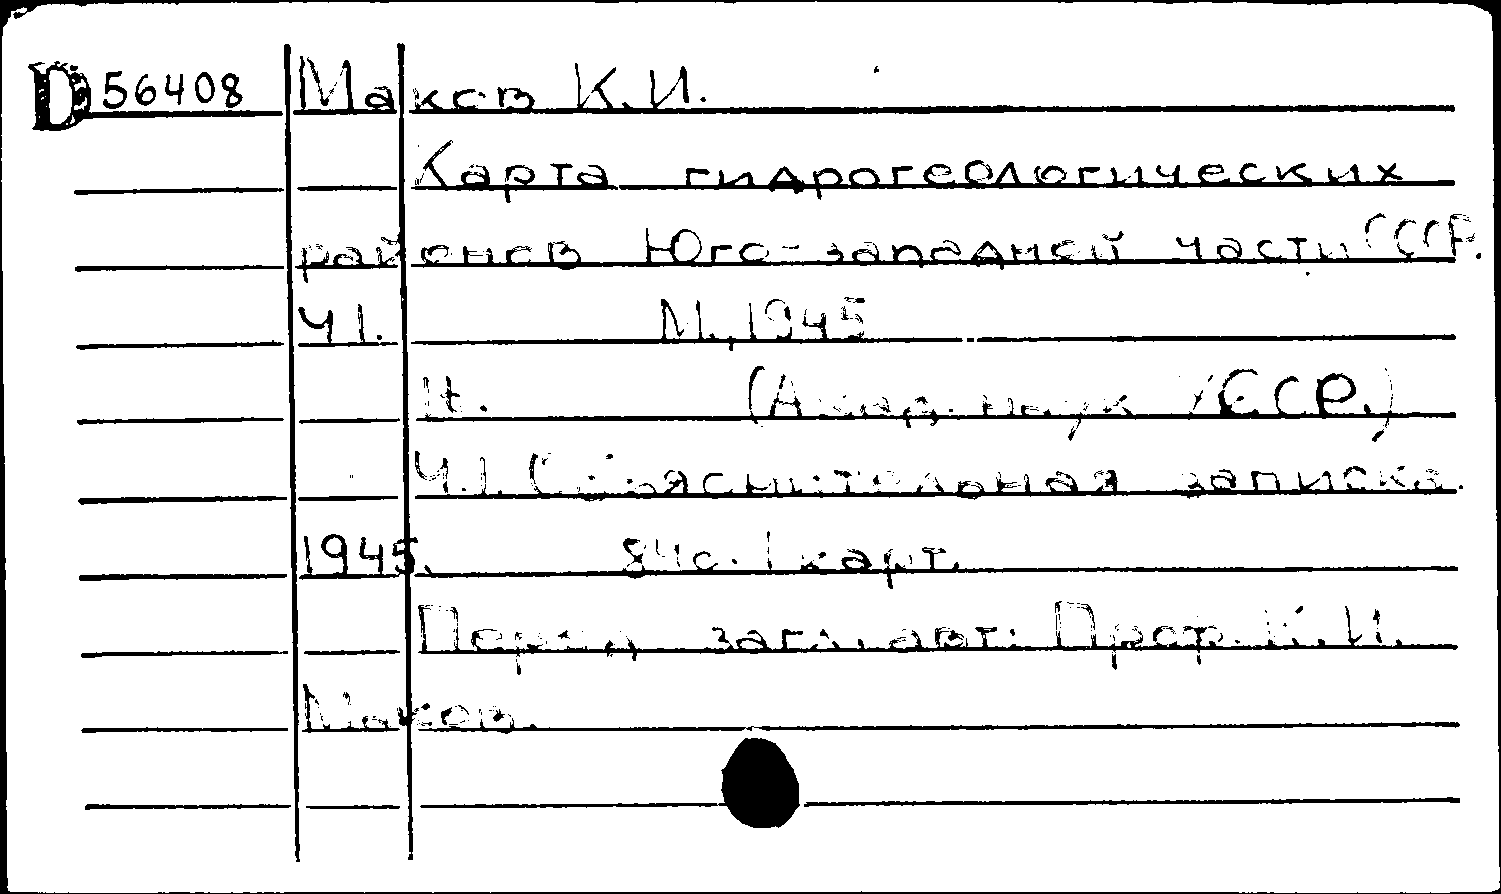 D 56408 Маков К.И.
Карта гидрогеологических
районов Юго-западной части СССР.
Ч 1. М., 1945
Н. (Акад. наук УССР.)
Ч.1. Объяснительная записка.
1945. 84с. 1 карт.
Перед загл. авт: Проф. К.И.
Маков.